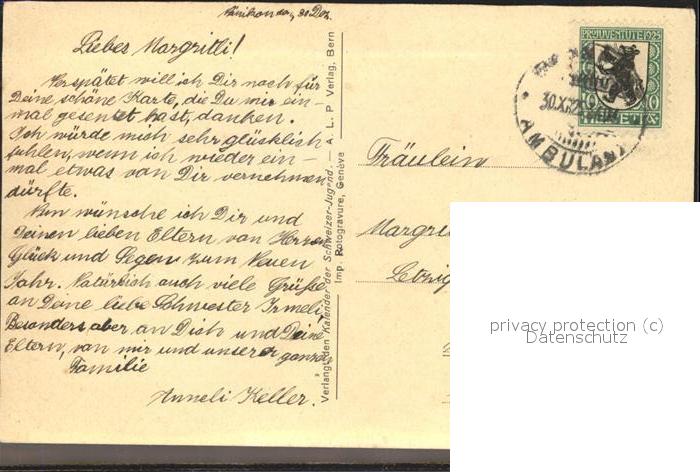 30 Dez.
Liebes Margritli!
Verspätet will ich Dir noch für
Deine schöne Karte, die Du mir ein-
mal gesentet hast, danken.
Ich würde mich sehr glücklich
fühlen, wenn ich wieder ein-
mal etwas von Dir vernehmen
dürfte.
Nun wünsche ich Dir und
Deinen lieben Eltern von Herzen
Glück und Segen zum Neuen
Jahr. Natürlich auch viele Grüße
an Deine liebe Schwester Irmeli,
Besonders aber an Dich und Deine
Eltern, von mir und unserer ganzen
Familie
Anneli Keller.
Verlangt den Kalender der Schweizer-Jugend. — A. L. P. Verlag, Bern
Imp. Rotogravure, Genève
PRO JUVENTUTE 1925
10 10
HELVETIA
AMBULANT
Fräulein
privacy protection (c)
Datenschutz